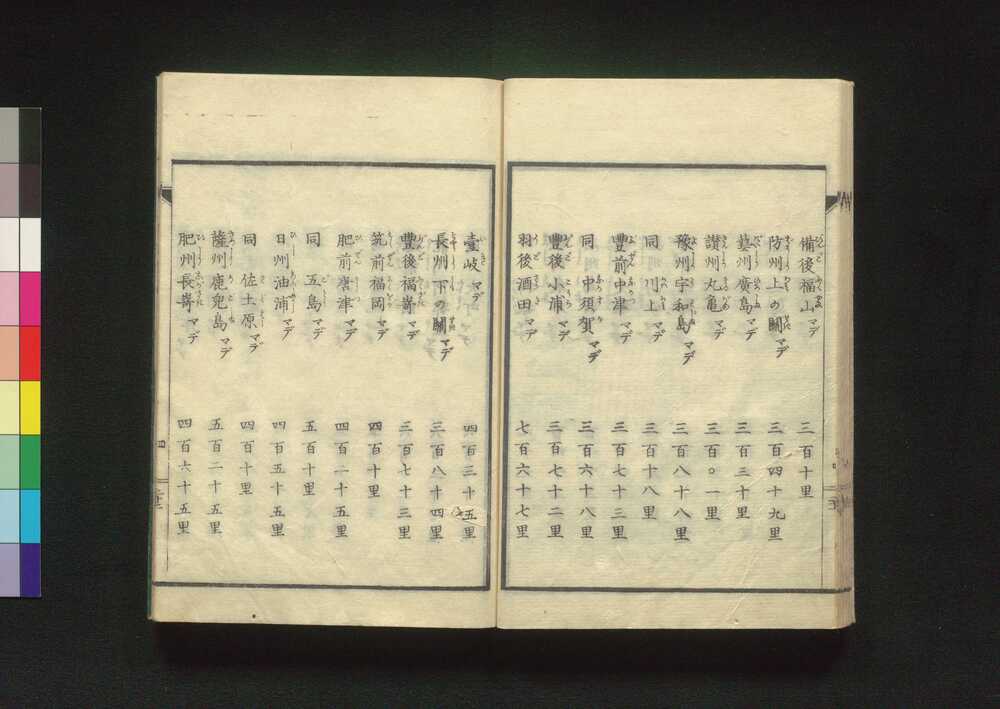 備後福山マデ 三百十里
防州上の関マデ 三百四十九里
藝州廣島マデ 三百三十里
讃州丸亀マデ 三百〇一里
豫州宇和島マデ 三百八十八里
同 川上マデ 三百十八里
豐前中津マデ 三百七十三里
同 中須賀マデ 三百六十八里
豐後小浦マデ 三百七十二里
羽後酒田マデ 七百六十七里
壹岐マデ 四百三十五里
長州下の関マデ 三百八十四里
豐後福嵜マデ 三百七十三里
筑前福岡マデ 四百十里
肥前唐津マデ 四百二十五里
同 五島マデ 五百十里
日州油浦マデ 四百五十五里
同 佐土原マデ 四百十里
薩州鹿児島マデ 五百二十五里
肥州長嵜マデ 四百六十五里